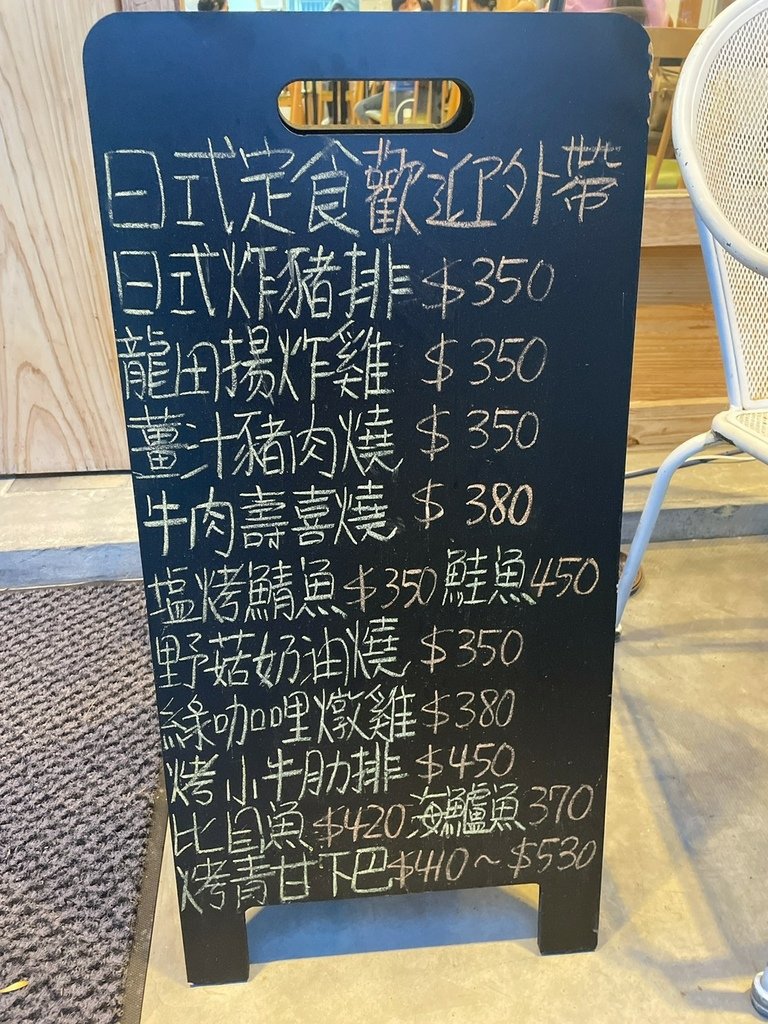 日式定食歡迎外帶
日式炸豬排 $350
龍田揚炸雞 $350
薑汁豬肉燒 $350
牛肉壽喜燒 $380
塩烤鯖魚$350 鮭魚450
野菇奶油燒 $350
綠咖哩燉雞 $380
烤小牛肋排 $450
比目魚 $420 海鱸魚370
烤青甘下巴$410~$530